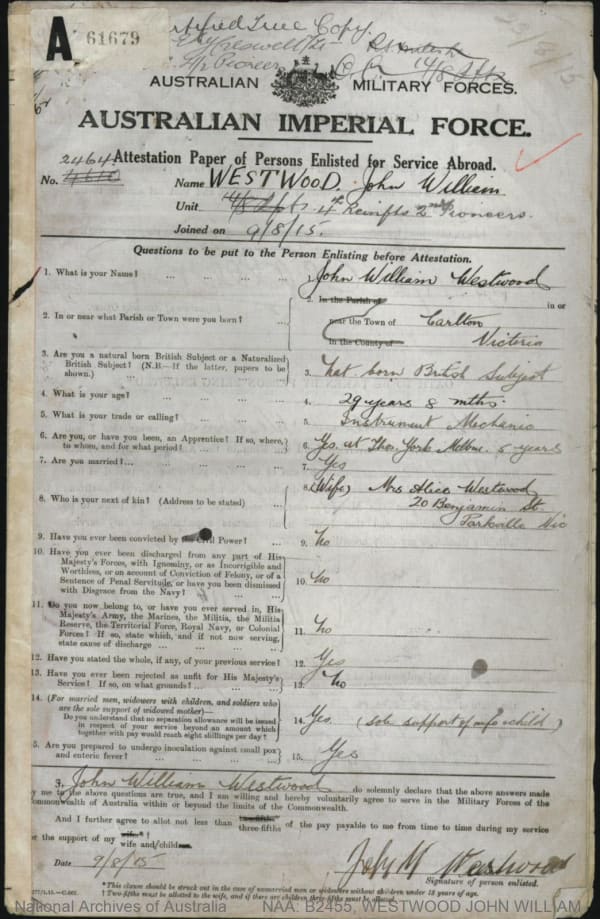 Certified True Copy.
A 61679
AUSTRALIAN MILITARY FORCES.
AUSTRALIAN IMPERIAL FORCE.
Attestation Paper of Persons Enlisted for Service Abroad.
2464
No. Name WESTWOOD. John William
Unit 4th Reinfts 2nd Pioneers.
Joined on 9/8/15.
Questions to be put to the Person Enlisting before Attestation.
1. What is your Name? ... 1. John William Westwood
2. In or near what Parish or Town were you born? ... 2. In the Parish of in or
near the Town of Carlton
in the County of Victoria
3. Are you a natural born British Subject or a Naturalized
British Subject? (N.B.—If the latter, papers to be
shown.) 3. Nat born British Subject
4. What is your age? ... 4. 29 years 8 mths.
5. What is your trade or calling? ... 5. Instrument Mechanic
6. Are you, or have you been, an Apprentice? If so, where,
to whom, and for what period? ... 6. Yes, at Thos. York Melbne. 5 years
7. Are you married? ... 7. Yes
8. Who is your next of kin? (Address to be stated) ... 8. (Wife) Mrs Alice Westwood
20 Benjamin St.
Parkville Vic
9. Have you ever been convicted by the Civil Power? ... 9. No
10. Have you ever been discharged from any part of His
Majesty's Forces, with Ignominy, or as Incorrigible and
Worthless, or on account of Conviction of Felony, or of a
Sentence of Penal Servitude, or have you been dismissed
with Disgrace from the Navy? ... 10. No
11. Do you now belong to, or have you ever served in, His
Majesty's Army, the Marines, the Militia, the Militia
Reserve, the Territorial Force, Royal Navy, or Colonial
Forces? If so, state which, and if not now serving,
state cause of discharge ... 11. No
12. Have you stated the whole, if any, of your previous service? 12. Yes
13. Have you ever been rejected as unfit for His Majesty's
Service? If so, on what grounds? ... 13. No
14. (For married men, widowers with children, and soldiers who
are the sole support of widowed mother)—
Do you understand that no separation allowance will be issued
in respect of your service beyond an amount which
together with pay would reach eight shillings per day? 14. Yes. (Sole support of wife & child)
5. Are you prepared to undergo inoculation against small pox
and enteric fever? ... 15. Yes
I, John William Westwood do solemnly declare that the above answers made
by me to the above questions are true, and I am willing and hereby voluntarily agree to serve in the Military Forces of the
Commonwealth of Australia within or beyond the limits of the Commonwealth.
And I further agree to allot not less than two-fifths three-fifths of the pay payable to me from time to time during my service
for the support of my wife.* wife and children.
Date 9/8/15 John W Westwood
Signature of person enlisted.
*This clause should be struck out in the case of unmarried men or widowers without children under 18 years of age.
† Two-fifths must be allotted to the wife, and if there are children three-fifths must be allotted.
National Archives of Australia NAA: B2455, WESTWOOD JOHN WILLIAM